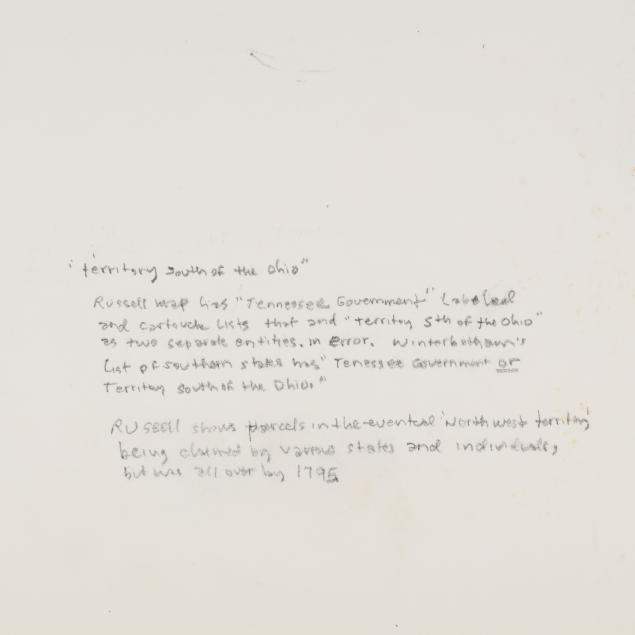 "territory south of the Ohio"
Russell map has "Tennessee Government" labeled
and cartouche lists that and "territory Sth of the Ohio"
as two separate entities, in error. Winterbotham's
list of southern states has "Tenessee Government or
Territory south of the Ohio."
RUssell shows parcels in the eventual 'North west territory'
being claimed by various states and individuals,
but was all over by 1795